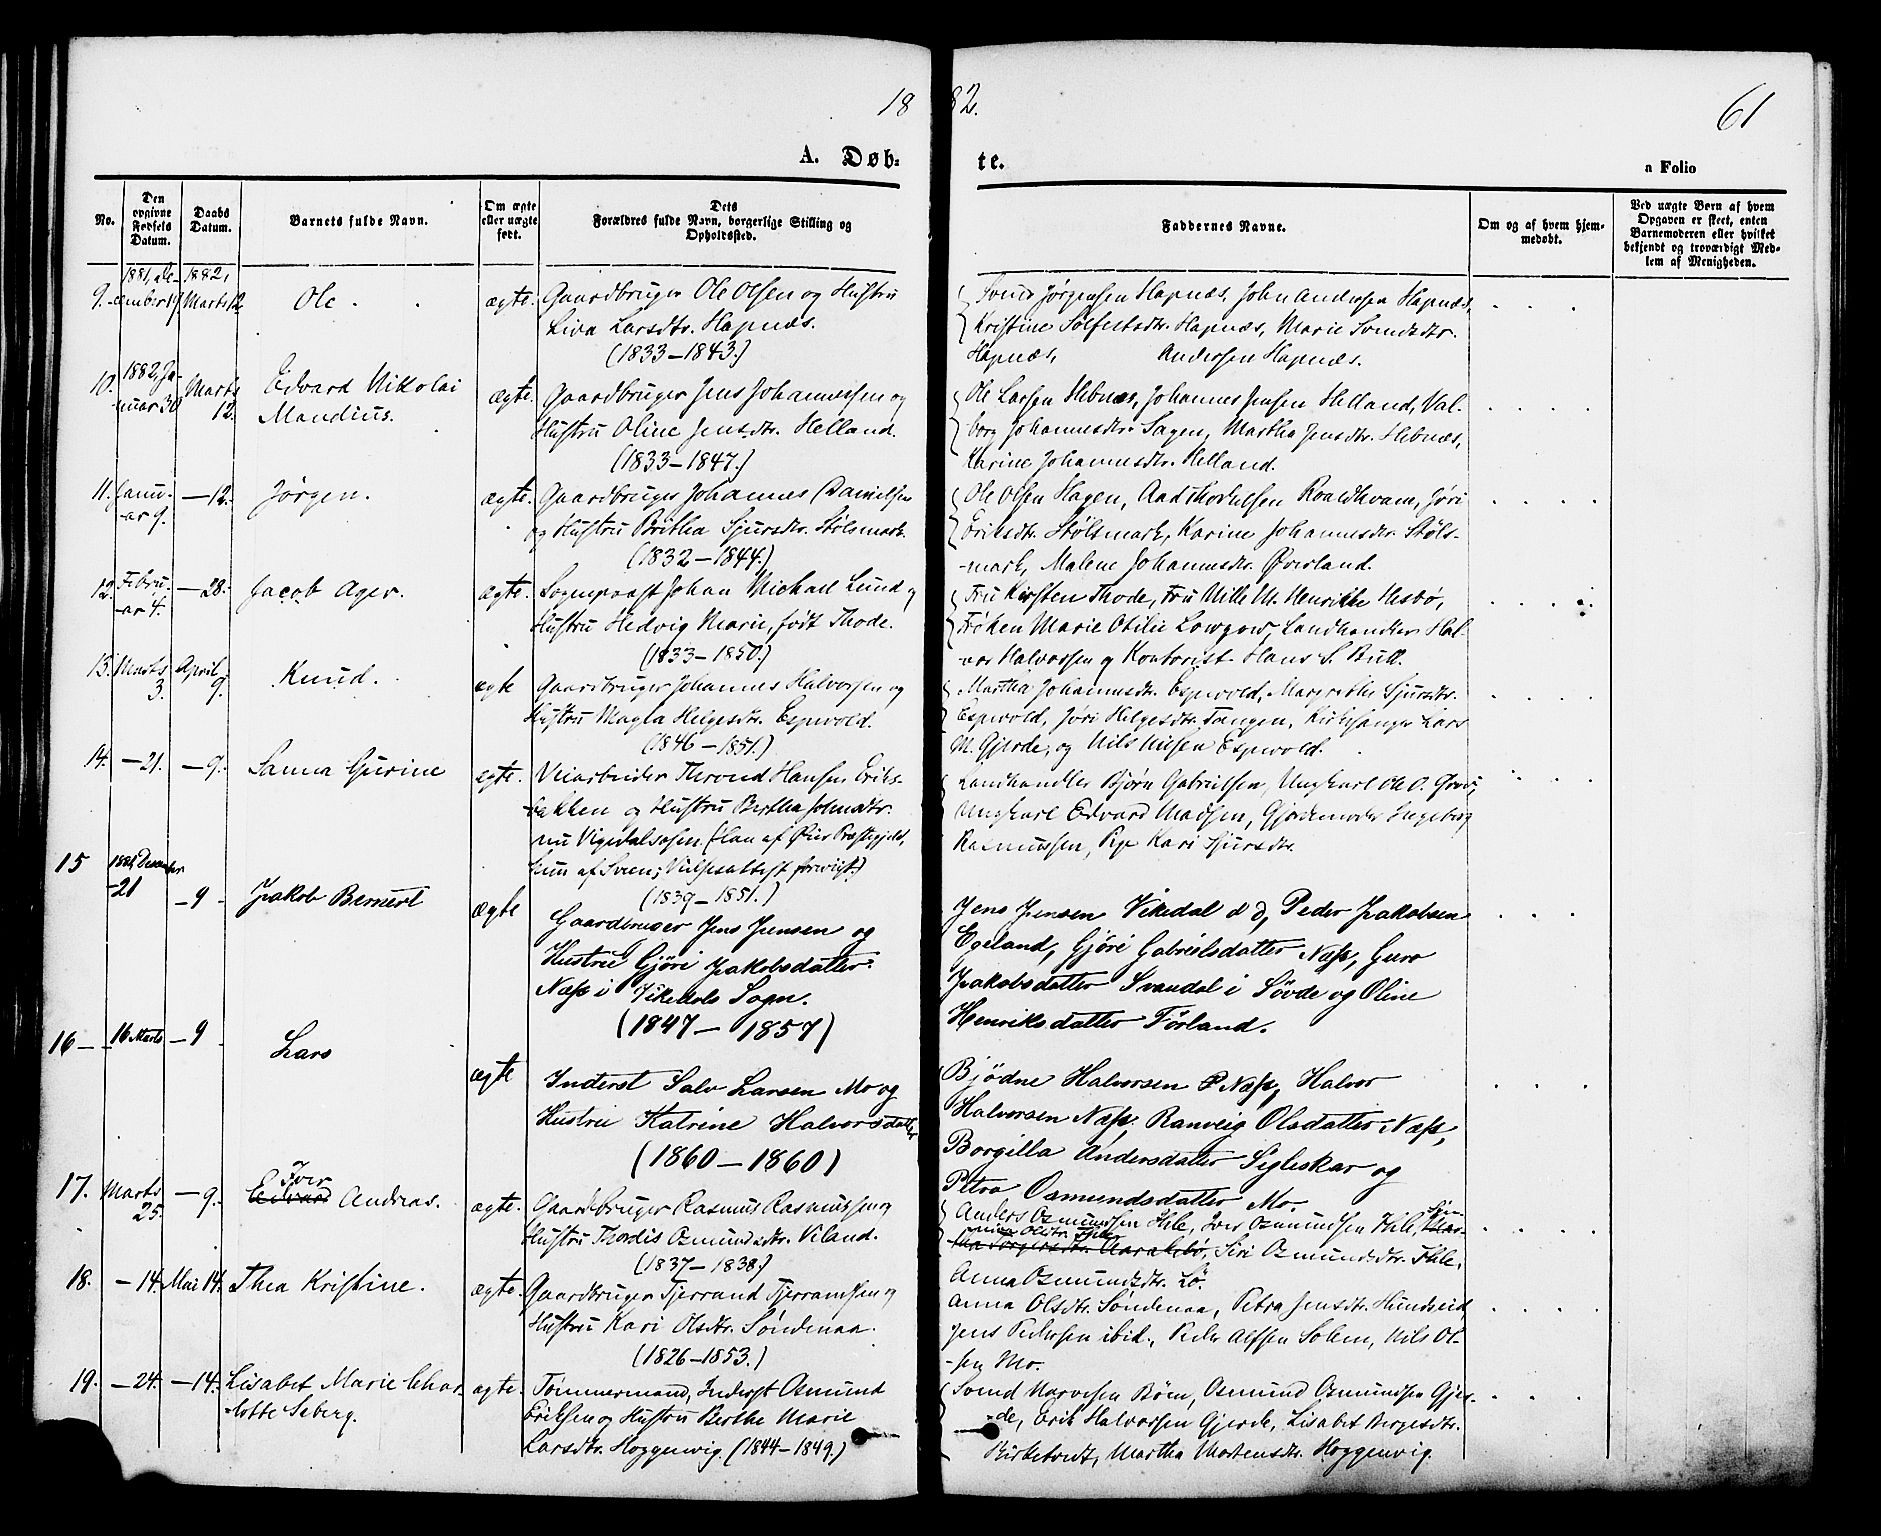 1882.
61
A. Døbte.
a Folio
No.
Den opgivne Fødsels Datum.
Daabs Datum.
Barnets fulde Navn.
Om ægte eller uægte født.
Dets Forældres fulde Navn, borgerlige Stilling og Opholdssted.
Faddernes Navne.
Om og af hvem hjemmedøbt.
Ved uægte Børn af hvem Opgaven er skeet, enten Barnemoderen eller hvilket bekjendt og troværdigt Medlem af Menigheden.
9. 1881, December 19. 1882, Marts 12 Ole. ægte. Gaardbruger Ole Olsen og Hustru
Liva Larsdtr. Hapnæs.
(1833–1843.)
Svend Jørgensen Hapnæs, John Andersen Hapnæs,
Kristine Sølfestsdtr. Hapnæs, Marie Svendsdtr.
Hapnæs, Andersen Hapnæs.
10. 1882, Januar 30 Marts 12. Edvard Nikolai
Mandius. ægte. Gaardbruger Jens Johannessen og
Hustru Oline Jensdtr. Helland.
(1833–1847.)
Ole Larsen Hebnæs, Johannes Jensen Helland, Val-
borg Johannesdtr. Sagen, Martha Jensdtr. Hebnæs,
Karine Johannesdtr. Helland.
11. Januar 9. –12. Jørgen. ægte. Gaardbruger Johannes Danielsen
og Hustru Britha Sjursdtr. Stølsmark.
(1832–1844.)
Ole Olsen Hagen, Aad Thorkelsen Roaldkvam, Jøri
Eriksdtr. Stølsmark, Karine Johannesdtr. Støls-
mark, Malene Johannesdtr. Øverland.
12. Februar 4. –28. Jacob Ager. ægte. Sognepræst Johan Michael Lund og
Hustru Hedvig Marie, født Thode.
(1833–1850.)
Fru Kirsten Thode, Fru Mille M. Henrikke Hesbø,
Frøken Marie Otilie Lowzow, Landhandler Hal-
vor Halvorsen og Kontorist Hans S. Bull.
13. Marts 3. April 9. Knud. ægte Gaardbruger Johannes Halvorsen og
Hustru Magla Helgesdtr. Espevold.
(1846–1851.)
Martha Johannesdtr. Espevold, Margrethe Sjursdtr.
Espevold, Jøri Helgesdtr. Tangen, Kirkesanger Lars
M. Gjerde, og Nils Nilsen Espevold.
14. –21. –9. Sanna Gurine ægte. Veiarbeider Thrond Hansen Eriks-
bakken og Hustru Bertha Johnsdtr.
nu Vigedalsosen (Han af Øier Præstegjeld,
hun af Sveen; Vielsesattest forevist.)
(1839–1851.)
Landhandler Bjørn Gabrielsen, Ungkarl Ole O.
Ungkarl Edvard Madsen, Gjordemoder Ingeborg
Rasmussen, Pige Kari Sjursdtr.
15 1881 December 21 –9. Jakob Berner ægte Gaardbruger Jens Jensen og
Hustru Gjøri Jakobsdatter
Næss i Vikedals Sogn.
(1847–1857)
Jens Jensen Vikedal d d, Peder Jakobsen
Egeland, Gjøri Gabrielsdatter Næss, Guro
Jakobsdatter Svandal i Søvde og Oline
Henriksdatter Førland.
16 16 Marts –9 Lars ægte Inderst Salv Larsen Mo og
Hustru Katrine Halvorsdatter
(1860–1860)
Bjødne Halvorsen P Næss, Halvor
Halvorsen Næss, Ranveig Olsdatter Næss,
Borgilla Andersdatter Sigleskar og
Petra Osmundsdatter Mo.
17. Marts 25. –9. Edvard Iver Andreas. ægte. Gaardbruger Rasmus Rasmussen og
Hustru Thordis Osmundsdtr. Viland.
(1837–1838.)
Anders Osmundsen Hile, Iver Osmundsen Hile,
Siri Osmundsdtr. Hile,
Anna Osmundsdtr. Lø.
18. –14. Mai 14. Thea Kristine. ægte. Gaardbruger Tjerrand Tjerransen og
Hustru Kari Olsdtr. Søndenaa.
(1826–1853.)
Anna Olsdtr. Søndenaa, Petra Jensdtr. Hundseid,
Jens Pedersen ibid., Peder Alfsen Solem, Nils Ol-
sen Mo.
19. –24. –14. Lisabet Marie Char-
lotte Seberg. ægte. Tømmermand, Inderst Osmund
Eriksen og Hustru Berthe Marie
Larsdtr. Hoggenvig. (1844–1849.)
Svend Børn, Osmund Osmundsen Gjer-
de, Erik Halvorsen Gjerde, Lisabet Børgesdtr.
Birketvedt, Martha Mortensdtr. Hoggenvig.